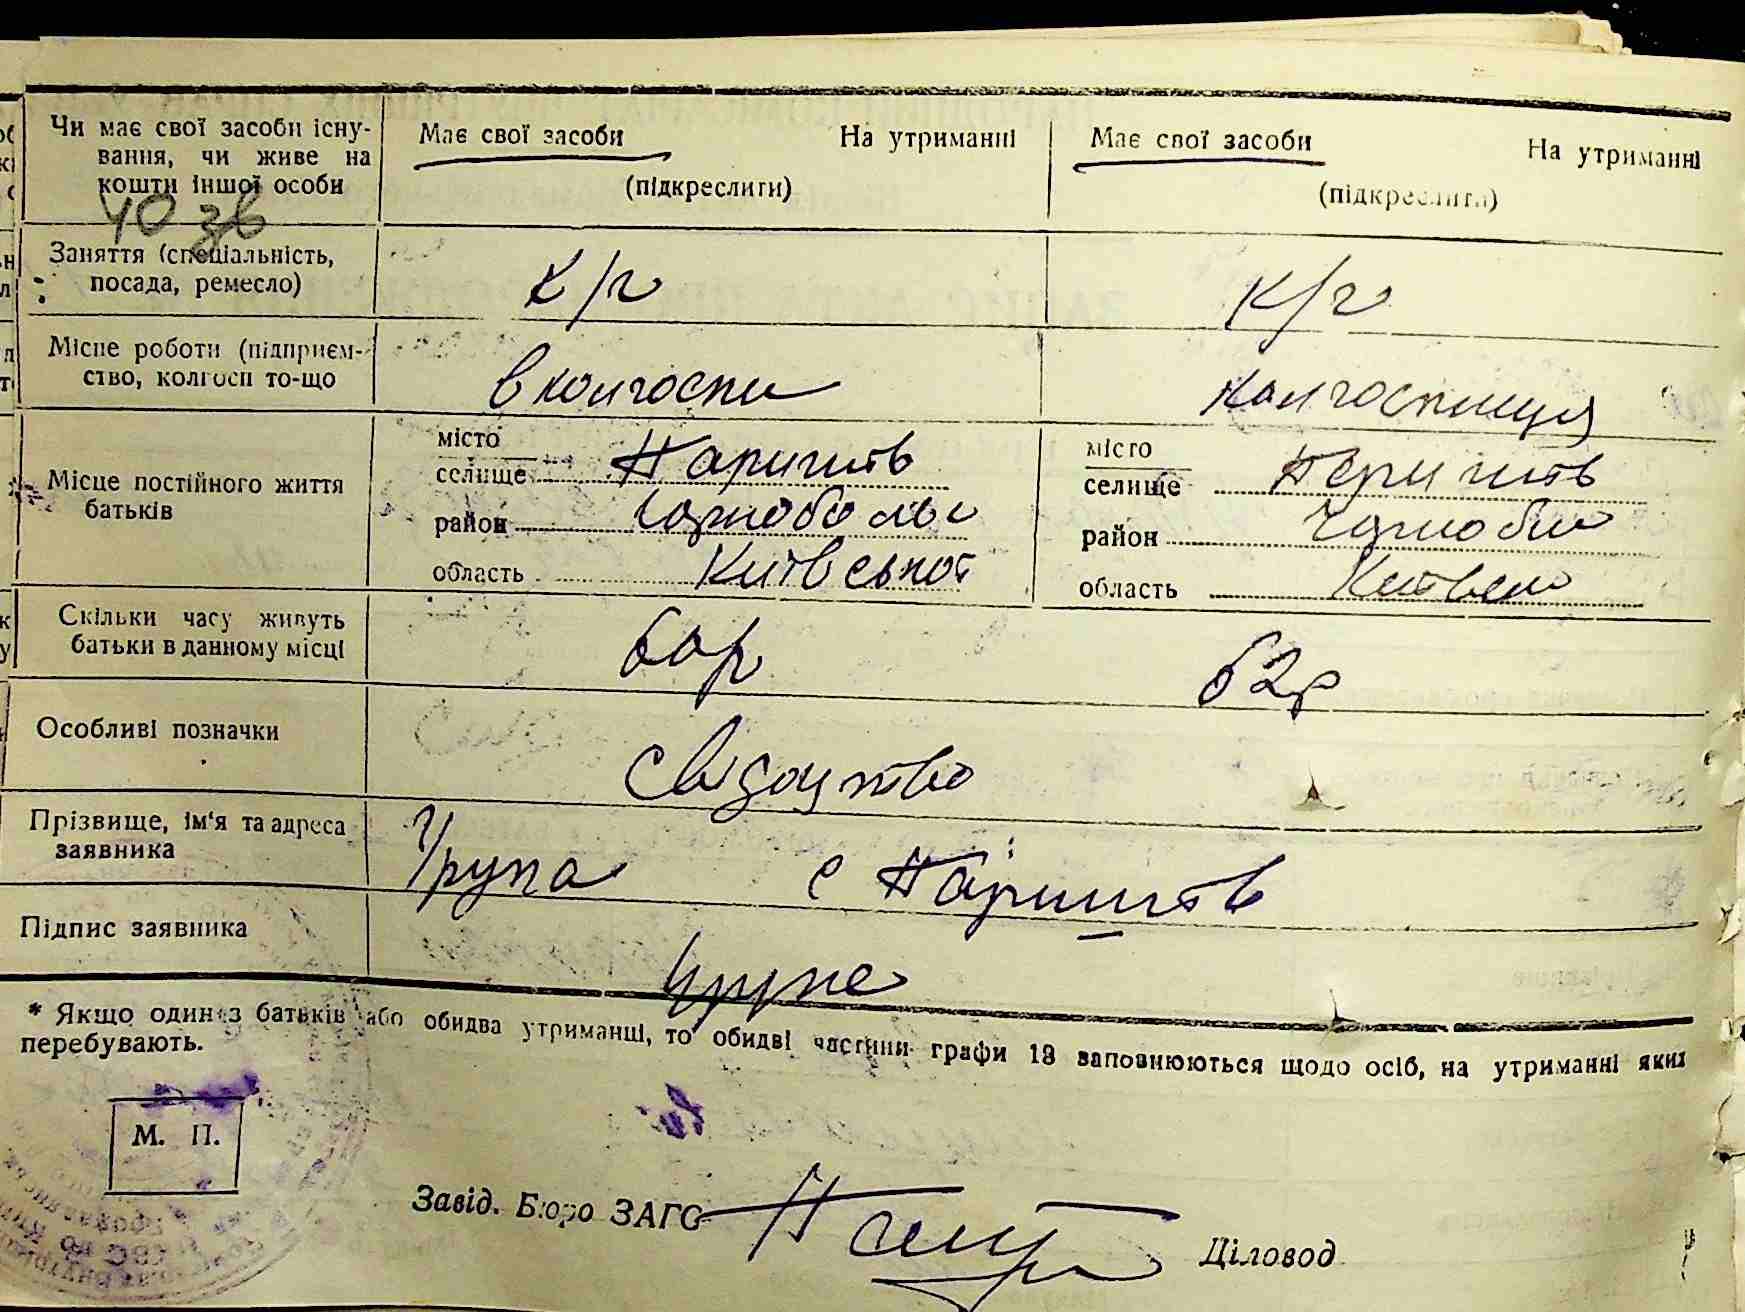 Чи має свої засоби існу- Має свої засоби На утриманні Має свої засоби На утриманні
вання, чи живе на (підкреслити) (підкреслити)
кошти іншої особи
40 зв
Заняття (спеціальність, к/г к/г
посада, ремесло)
Місце роботи (підприєм- в колгоспи колгоспниця
ство, колгосп то-що
місто місто
Місце постійного життя селище Паришів селище Перишів
батьків район район Чорнобил
область Київської область
Скільки часу живуть 60р 62р
батьки в данному місці
Особливі позначки свідоцтво
Прізвище, ім'я та адреса Група с Паришів
заявника
Підпис заявника
* Якщо один з батьків або обидва утриманці, то обидві частини графи 13 заповнюються щодо осіб, на утриманні яких
перебувають.
М. П.
Завід. Бюро ЗАГС Діловод